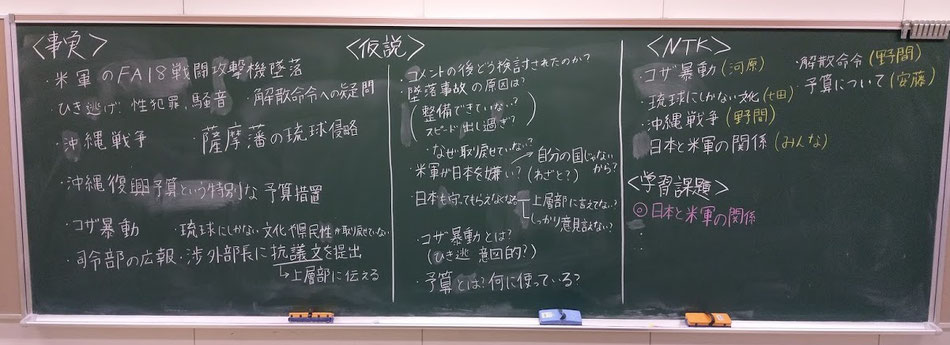 〈事実〉
・米軍のFA18戦闘攻撃機墜落
ひき逃げ、性犯罪、騒音 ・解散命令への疑問
・沖縄戦争 ・薩摩藩の琉球侵略
・沖縄復興予算という特別な予算措置
・コザ暴動 ・琉球にしかない文化、県民性が取り戻せていない
・司令部の広報・渉外部長に抗議文を提出
↳上層部に伝える
〈仮説〉
・コメントの後どう検討されたのか?
・墜落事故の原因は?
(整備できていない?
スピード出し過ぎ?)
・なぜ取り戻せていない?
・米軍が日本を嫌い?(わざと?)
→自分の国じゃないから?
日本も守ってもらえなくなる
上層部に言えてない?
しっかり意見言えない?
・コザ暴動とは?
(ひき逃 意図的?)
・予算とは?何に使っている?
〈NTK〉
・コザ暴動(河原) ・解散命令(野間)
・琉球にしかない文化(七田) 予算について(安藤)
・沖縄戦争(野間)
・日本と米軍の関係(みんな)
〈学習課題〉
◎日本と米軍の関係